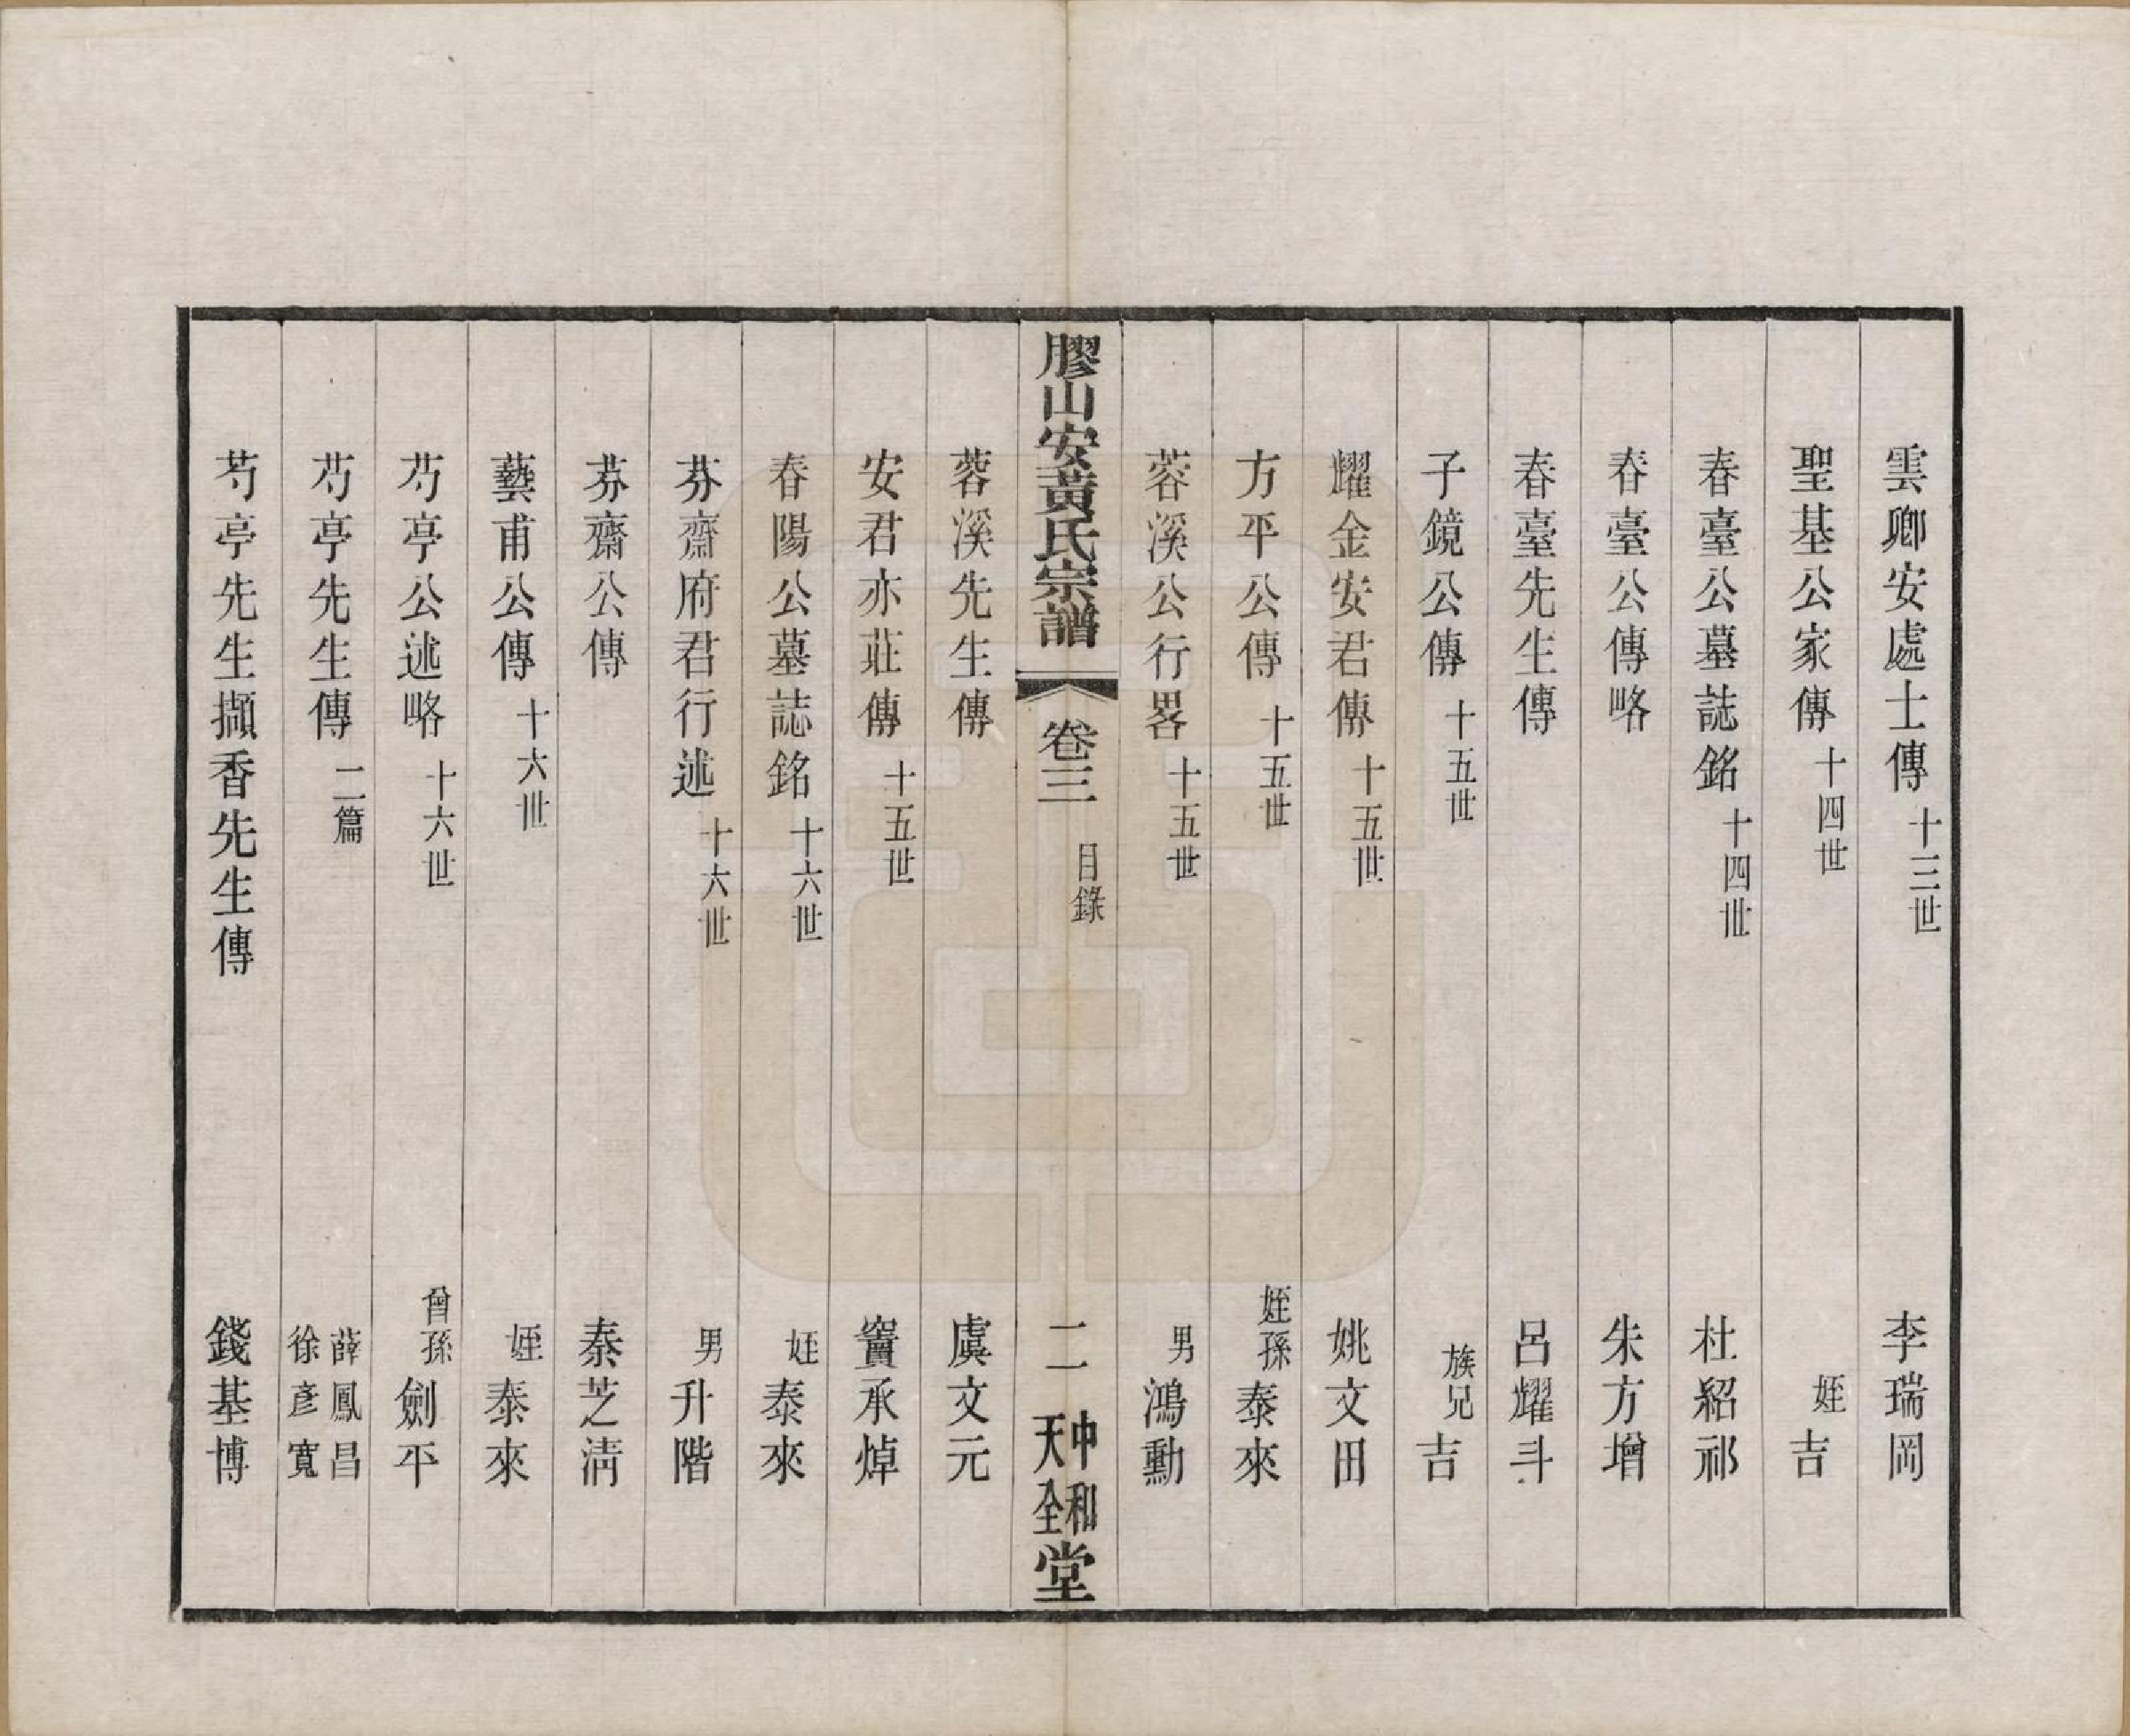 雲卿安處士傳 十三世 李瑞岡
聖基公家傳 十四世 姪 吉
春臺公墓誌銘 十四世 杜紹祁
春臺公傳略 朱方增
春臺先生傳 呂耀斗
子鏡公傳 十五世 族兄 吉
耀金安君傳 十五世 姚文田
方平公傳 十五世 姪孫 泰來
蓉溪公行畧 十五世 男 鴻勳
膠山安黃氏宗譜 卷三 目錄 二 中和 天全 堂
蓉溪先生傳 虞文元
安君亦莊傳 十五世 竇承焯
春陽公墓誌銘 十六世 姪 泰來
芬齋府君行述 十六世 男 升階
芬齋公傳 秦芝清
藝甫公傳 十六世 姪 泰來
芍亭公述略 十六世 曾孫 劍平
芍亭先生傳 二篇 薛鳳昌 徐彥寬
芍亭先生擷香先生傳 錢基博